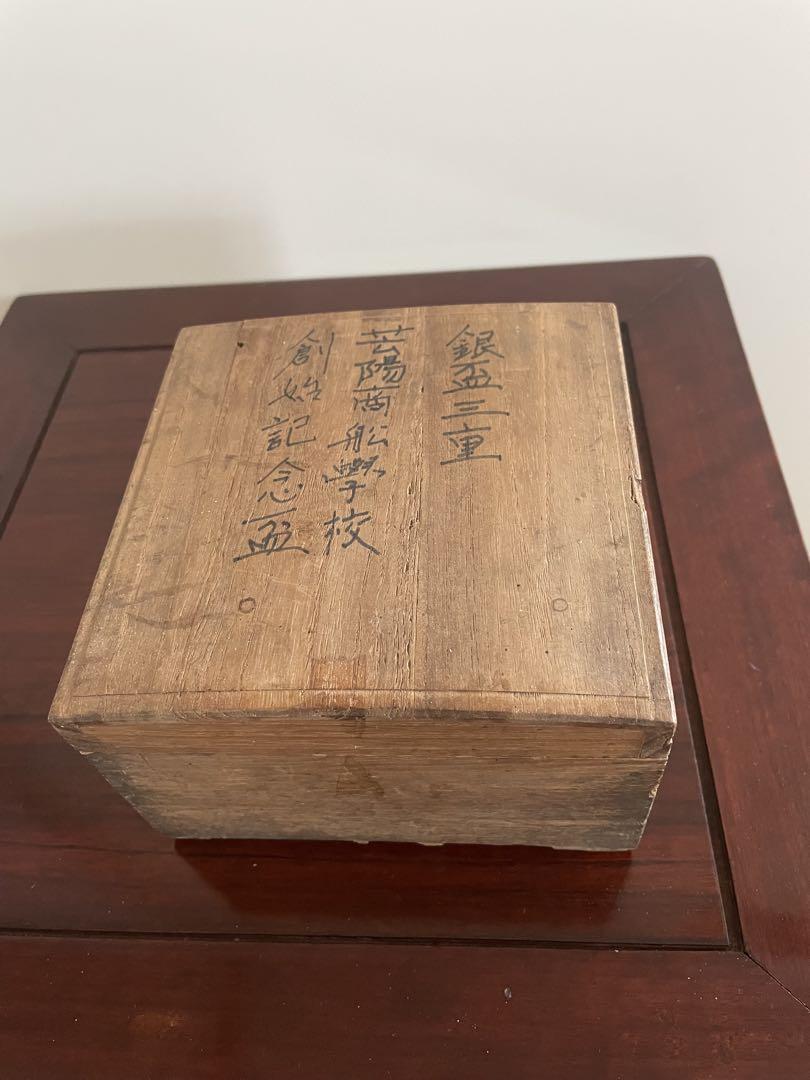 銀盃三重
芸陽商船學校
創始記念盃